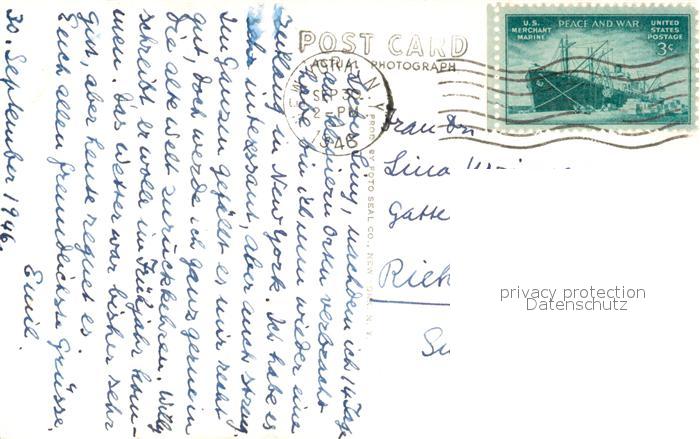 POST CARD
ACTUAL PHOTOGRAPH
U.S. MERCHANT MARINE
PEACE AND WAR
UNITED STATES POSTAGE
3¢
N.Y.
SEP 30
2 PM
1946
PROD. BY FOTO SEAL CO., NEW YORK, N.Y.
Lina
Gatte
Rich
Su
privacy protection
Datenschutz
nachdem ich 14 Tage
an kleinern Orten verbracht
habe bin ich nun wieder eine
in New York. Ich habe es
sehr interessant, aber auch streng.
Im Ganzen gefällt es mir recht
gut, doch werde ich ganz gerne in
die alte Welt zurückkehren. Willy
schreibt er wolle im Frühjahr kom-
men. Das Wetter war bisher sehr
gut, aber heute regnet es.
Euch allen freundlichste Grüsse.
Emil.
30. September 1946.